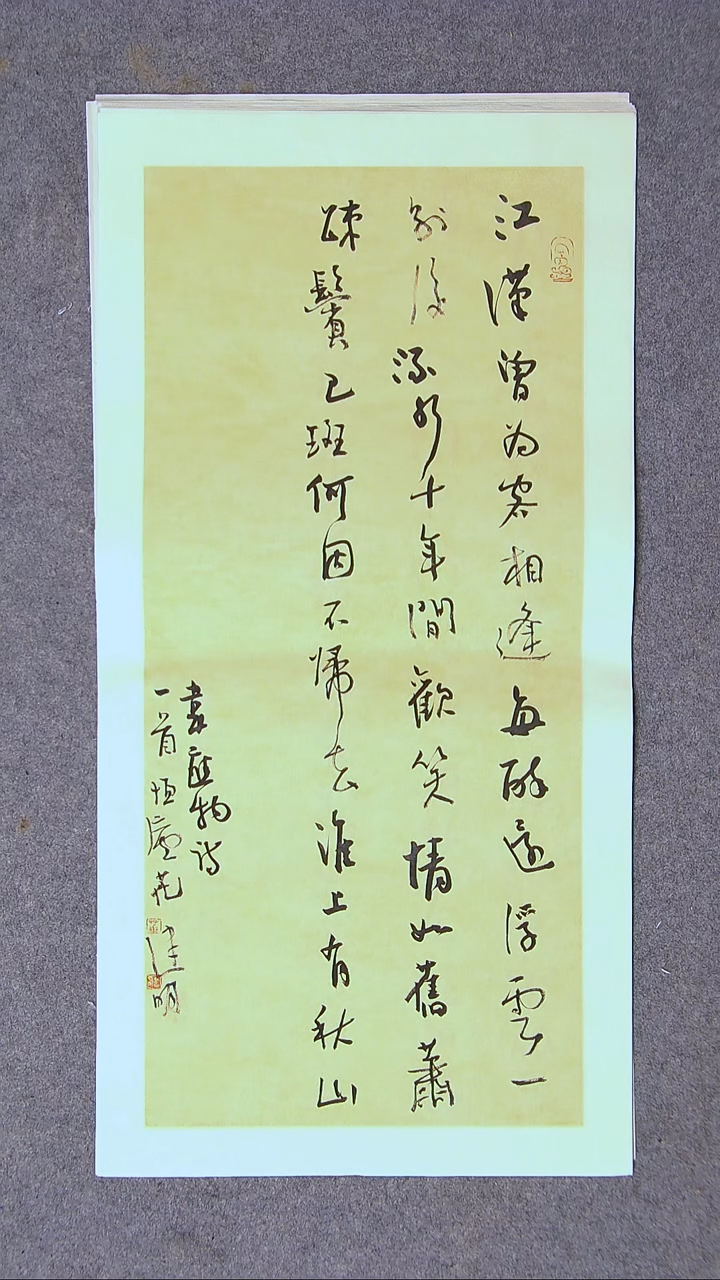 江漢曾為客相逢每醉還浮雲一
別後流水十年間歡笑情如舊蕭
踈鬢已斑何因不歸去淮上有秋山
韋應物詩
一首恒廬建明